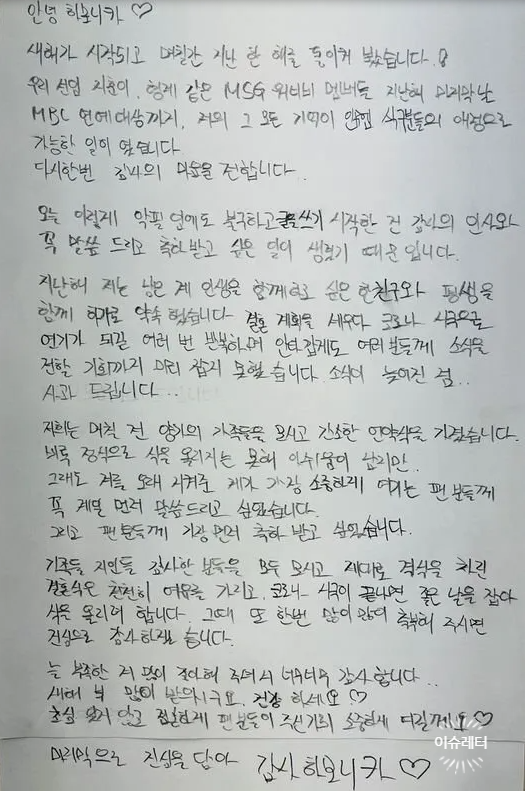 안녕 하모니카 ♡
새해가 시작되고 며칠간 지난 한 해를 돌이켜 봤습니다.
우리 선업 지호이, 형제 같은 MSG 워너비 멤버들 지난해 마지막날
MBC 연예대상까지, 저의 그 모든 기억이 식구분들의 애정으로
가능한 일이 었습니다
다시한번 감사의 마음을 전합니다.
오늘 이렇게 악필 임에도 불구하고 글쓰기 시작한 건 감사의 인사와
꼭 말씀 드리고 축하 받고 싶은 일이 생겼기 때문입니다.
지난해 저는 남은 제 인생을 함께하고 싶은 한친구와 평생을
함께 하기로 약속 했습니다 결혼 계획을 세우다 코로나 시국으로
연기가 되길 여러 번 반복하며 안타깝게도 여러분들께 소식을
전할 기회까지 미리 잡지 못했습니다. 소식이 늦어진 점..
사과 드립니다..
저희는 며칠 전 양가의 가족들을 모시고 간소한 언약식을 가졌습니다.
비록 정식으로 식을 올리지는 못해 아쉬움이 남지만.
그래도 저를 오래 지켜준 제가 가장 소중하게 여기는 팬 분들께
꼭 제일 먼저 말씀드리고 싶었습니다.
그리고 팬 분들께 가장 먼저 축하 받고 싶었습니다.
가족들 지인들 감사한 분들을 모두 모시고 제대로 격식을 차린
결혼식은 천천히 여유를 가지고, 코로나 시국이 끝나면 좋은 날을 잡아
식을 올리려 합니다. 그때 또 한번 많이 많이 축복해 주시면
진심으로 감사하겠습니다.
늘 부족한 저 많이 좋아해 주셔서 너무너무 감사 합니다..
새해 복 많이 받으시구요, 건강 하세요 ♡
초심 잃지 않고 팬 분들이 주신 소중하게 여길께요 ♡
마지막으로 진심을 담아 감사 하모니카 ♡
이슈레터